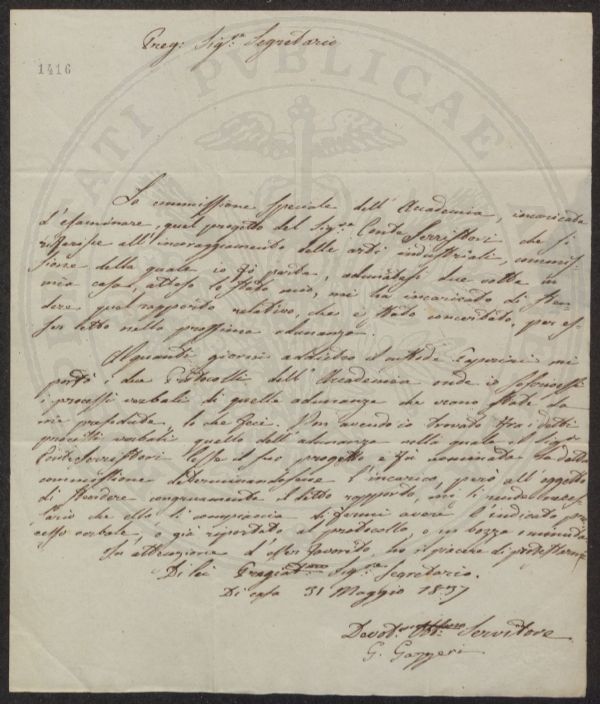 Preg: Sig.re Segretario
1416
La commissione speciale dell'Accademia, incaricata
d'esaminare quel progetto del Sig.re Conte Serristori che si
riferisce all'incoraggiamento delle arti industriali, commis-
sione della quale io fò parte, adunatasi due volte in
mia casa, atteso lo stato mio, mi ha incaricato di sten-
dere quel rapporto relativo, che è stato concertato, per es-
ser letto nella prossima adunanza.
Alquanti giorni addietro il custode mi
portò i due Protocolli dell'Accademia onde io
i processi verbali di quelle adunanze che erano state da
me presedute, lo che feci. Non avendo io trovato tra i detti
processi verbali quello dell'adunanza nella quale il Sig.re
Conte Serristori lesse il suo progetto e fù nominata la detta
commissione determinandosene l'incarico, però all'oggetto
di stendere congruamente il detto rapporto, mi si rende neces-
sario che ella si compiaccia di farmi avere l'indicato pro-
cesso verbale, o già riportato al protocollo, o in bozza o minuta
In attenzione d'esser favorito, ho il piacere di protestarmi
Di Lei Pregiat.mo Sig.re Segretario.
Di casa 31 Maggio 1837
Devot. Servitore
G. Gazzeri
PUBLICAE